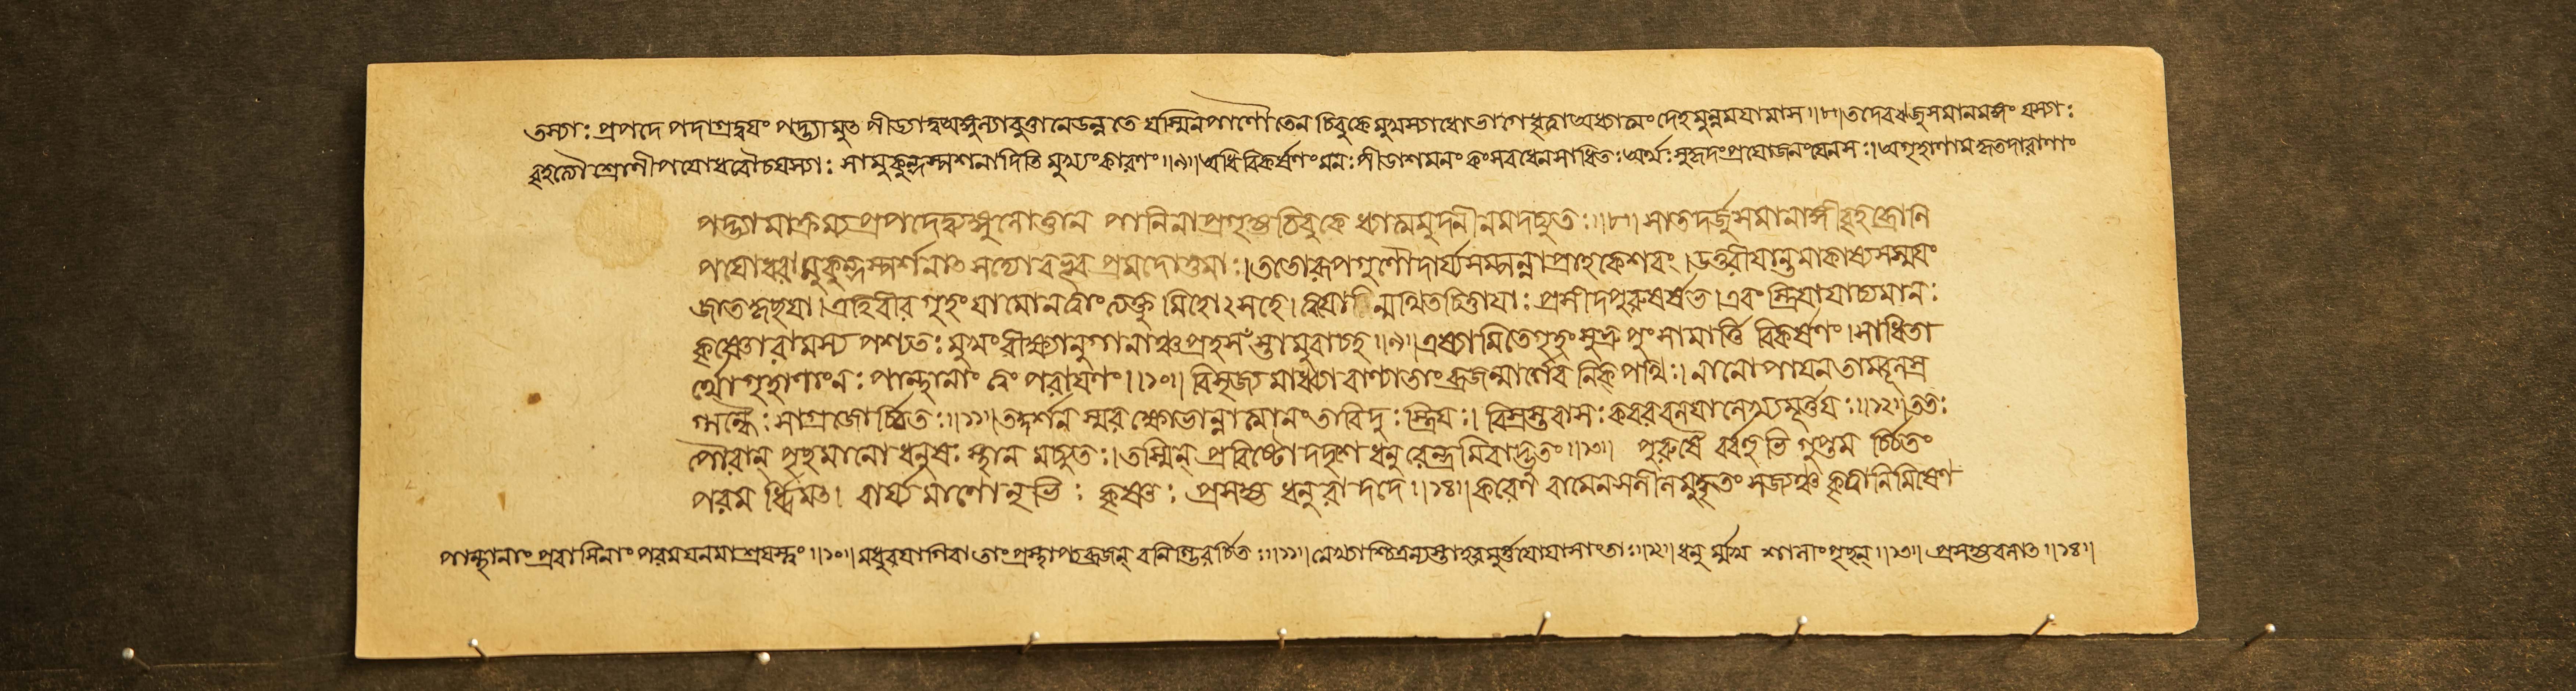 তস্যাঃ প্রপদে পদাগ্রদ্বয়ং পদ্ভ্যামুৎ পীড্যাদ্ব্যঙ্গুল্যাবুত্তানেউন্নতে যস্মিন্‌পাণৌ তেন চিবুকে মুখস্যাধোভাগেধৃত্বাঅধ্যাত্মং দেহমুন্নময়ামাস॥৮॥তদেবঋজুসমানমঙ্গং যস্যাঃ
বৃহত্যৌশ্রোণীপযোধরৌচযস্যাঃ সামুকুন্দস্পর্শনাদিতি মুখ্যং কারণং॥৯॥আধি বিকর্ষণং মনঃ পীডাশমনং কংসবধেনসাধিতঃঅর্থঃ সুহৃদংপ্রযোজনংযেনসঃ।অগৃহাণামকৃতদারাণাং
পদ্ভ্যামাক্রম্যপ্রপদেদ্ব্যঙ্গুলোত্তান পানিনাপ্রগৃহ্যচিবুকে ধ্যাত্মমুদনীনমদচ্যুতঃ॥৮॥ সাতদর্জুসমানাঙ্গীবৃহচ্ছ্রোনি
পযোধরা।মুকুন্দস্পর্শনাৎ সদ্যোবভূব প্রমদোত্তমাঃ।ততোরূপগুণৌদার্য্যসম্পন্নাপ্রাহকেশবং।উত্তরীযান্তমাকৃষ্যসস্ময়ং
জাতহৃচ্ছযা।এহিবীর গৃহংযামোনত্বাংত্যক্তু মিহোৎসহে।ত্বযোন্মথিতচিত্তাযাঃ প্রসীদপুরুষর্ষভ।এবং স্ত্রিযাযাচ্যমানঃ
কৃষ্ণোরামস্য পশ্যতঃ মুখংবীক্ষ্যানুগানাঞ্চপ্রহসঁস্তামুবাচহ॥৯॥এষ্যামিতেগৃহংসুভ্রু পুংসামার্ত্তি বিকর্ষণং।সাধিতা
র্থোগৃহাণাংনঃ পান্থানাং ত্বং পরাযণং॥১০॥ বিসৃজ্য মাধ্ব্যা বাণ্যাতাংব্রজন্মার্গেব নিক্ পথিঃ।নানোপাযনতাম্বূলস্র
গ্গন্ধৈঃ সাগ্রজোর্চ্চিতঃ॥১১॥তদ্দর্শন স্মর ক্ষোভান্নাত্মানংতাবিদুঃ স্ত্রিযঃ। বিস্রস্তবাসঃ কবরবলযালেখ্যমূর্ত্তযঃ॥১২॥ততঃ
পৌরান্ পৃচ্ছমানো ধনুষঃ স্থান মচ্যুতঃ।তস্মিন্ প্রবিষ্টোদদৃশে ধনুরেন্দ্রমিবাদ্ভুতং॥১৩॥ পুরুষৈ র্বর্বহুভি গুপ্তম র্চ্চিতং
পরম র্দ্ধিমৎ। বার্য্য মাণো নৃভিঃ কৃষ্ণঃ প্রসহ্য ধনুরাদদে॥১৪॥করেণ বামেনসলীলমুদ্ধৃতং সজ্যঞ্চ কৃত্বানিমিষেণ
পান্থানাং প্রবাসিনাং পরমযনমাশ্রযস্ত্বং॥১০॥মধুরযাগিরাতাং প্রস্থাপ্যব্রজন্ বনিগ্ভিরর্চিতঃ॥১১॥লেখ্যাশ্চিত্রন্যস্তাইবমূর্ত্তযোযাসাংতাঃ॥১২॥ধনু র্ম্মখ শালাংপৃচ্ছন্॥১৩॥ প্রসহ্যবলাৎ॥১৪॥